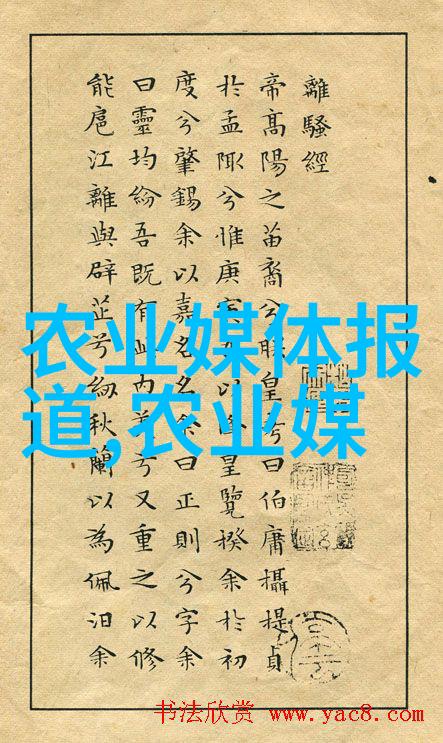 離騷經
帝高陽之苗裔兮朕皇考曰伯庸攝提貞
於孟陬兮惟庚以降皇覽揆余於初
度兮肇錫余以嘉名名余曰正則兮字余
曰靈均紛吾既有此內美兮又重之以修
能扈江離與辟芷兮紉秋蘭以為佩汨余
农业媒体报
道,农业媒
书法欣赏 www.yac8.com